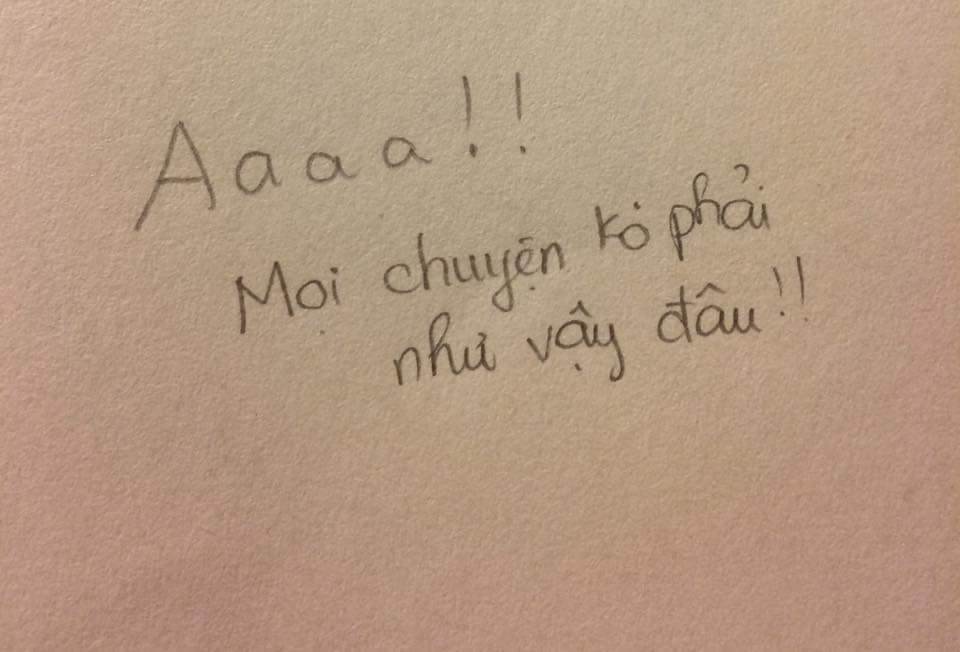 Aaaa!!
Mọi chuyện ko phải
như vậy đâu!!